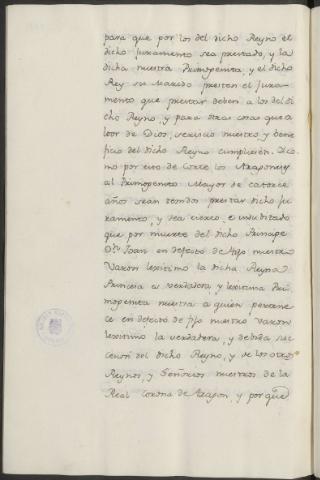 para que por los del dicho Reyno el
dicho Juramento sea prestado, y la
dicha nuestra Primogenita, y el dicho
Rey su Marido presten el Jura-
mento que prestar deben a los del di
cho Reyno, y para otras cosas que a
loor de Dios, servicio nuestro y bene
ficio del dicho Reyno cumplirán. Co-
mo por
los Aragoneses
al Primogenito Mayor de catorce
años sean tenidos prestar dicho ju
ramento, y sea cierto, e indubitado
que por muerte del dicho Principe
Dn. Joan en defecto de hijo nuestro
Varon lexitimo la dicha Reyna
Princesa es verdadera, y lexitima Pri
mogenita nuestra a quien pertene
ce en defecto de hijo nuestro varon
lexitimo la verdadera, y debida suc
cesion del dicho Reyno, y de los otros
Reynos, y Señorios nuestros de la
Real Corona de Aragon, y porque